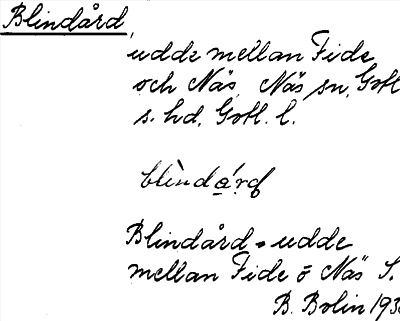 Blindård,
udde mellan Fide
och Näs, Näs sn, Gotl.
s. hd, Gotl. l.
Blindård = udde
mellan Fide o Näs S.
B. Bolin